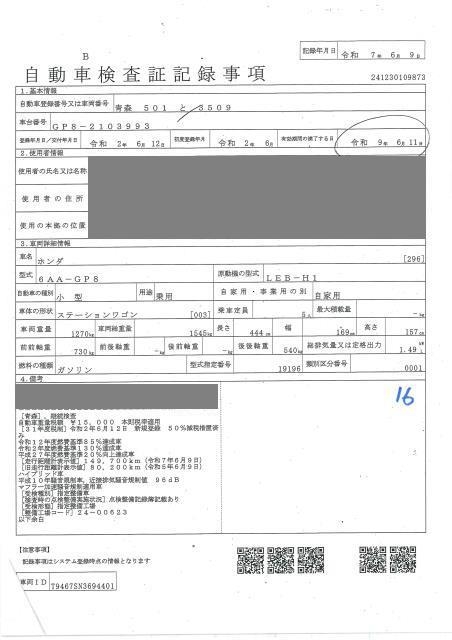 B
記録年月日 令和 7年 6月 9日
自動車検査証記録事項
241230109873
1.基本情報
自動車登録番号又は車両番号 青森 501 と 3509
車台番号 GP8-2103993
登録年月日/交付年月日 令和 2年 6月 12日 初度登録年月 令和 2年 6月 有効期間の満了する日 令和 9年 6月 11日
2.使用者情報
使用者の氏名又は名称
使用者の住所
使用の本拠の位置
3.車両詳細情報
車名 ホンダ [296]
型式 6AA-GP8 原動機の型式 LEB-H1
自動車の種別 小型 用途 乗用 自家用・事業用の別 自家用
車体の形状 ステーションワゴン [003] 乗車定員 5人 最大積載量 -kg
車両重量 1270kg 車両総重量 1545kg 長さ 444cm 幅 169cm 高さ 157cm
前前軸重 730kg 前後軸重 -kg 後前軸重 -kg 後後軸重 540kg 総排気量又は定格出力 1.49L
燃料の種類 ガソリン 型式指定番号 19196 類別区分番号 0001
4.備考
16
[青森],継続検査
自動車重量税額 ¥15,000 本則税率適用
[31年度税制]令和2年6月12日 新規登録 50%減税措置済
み
令和12年度燃費基準85%達成車
令和2年度燃費基準130%達成車
平成27年度燃費基準20%向上達成車
[走行距離計表示値]149,700km(令和7年6月9日)
[旧走行距離計表示値]80,200km(令和5年6月9日)
ハイブリッド車
平成10年騒音規制車,近接排気騒音規制値 96dB
マフラー加速騒音規制適用車
[受検種別]指定整備車
[検査時の点検整備実施状況]点検整備記録簿記載あり
[受検形態]指定整備工場
[整備工場コード]24-00623
以下余白
【注意事項】
記録事項はシステム登録時点の情報となります
車両ID T9467SN3694401